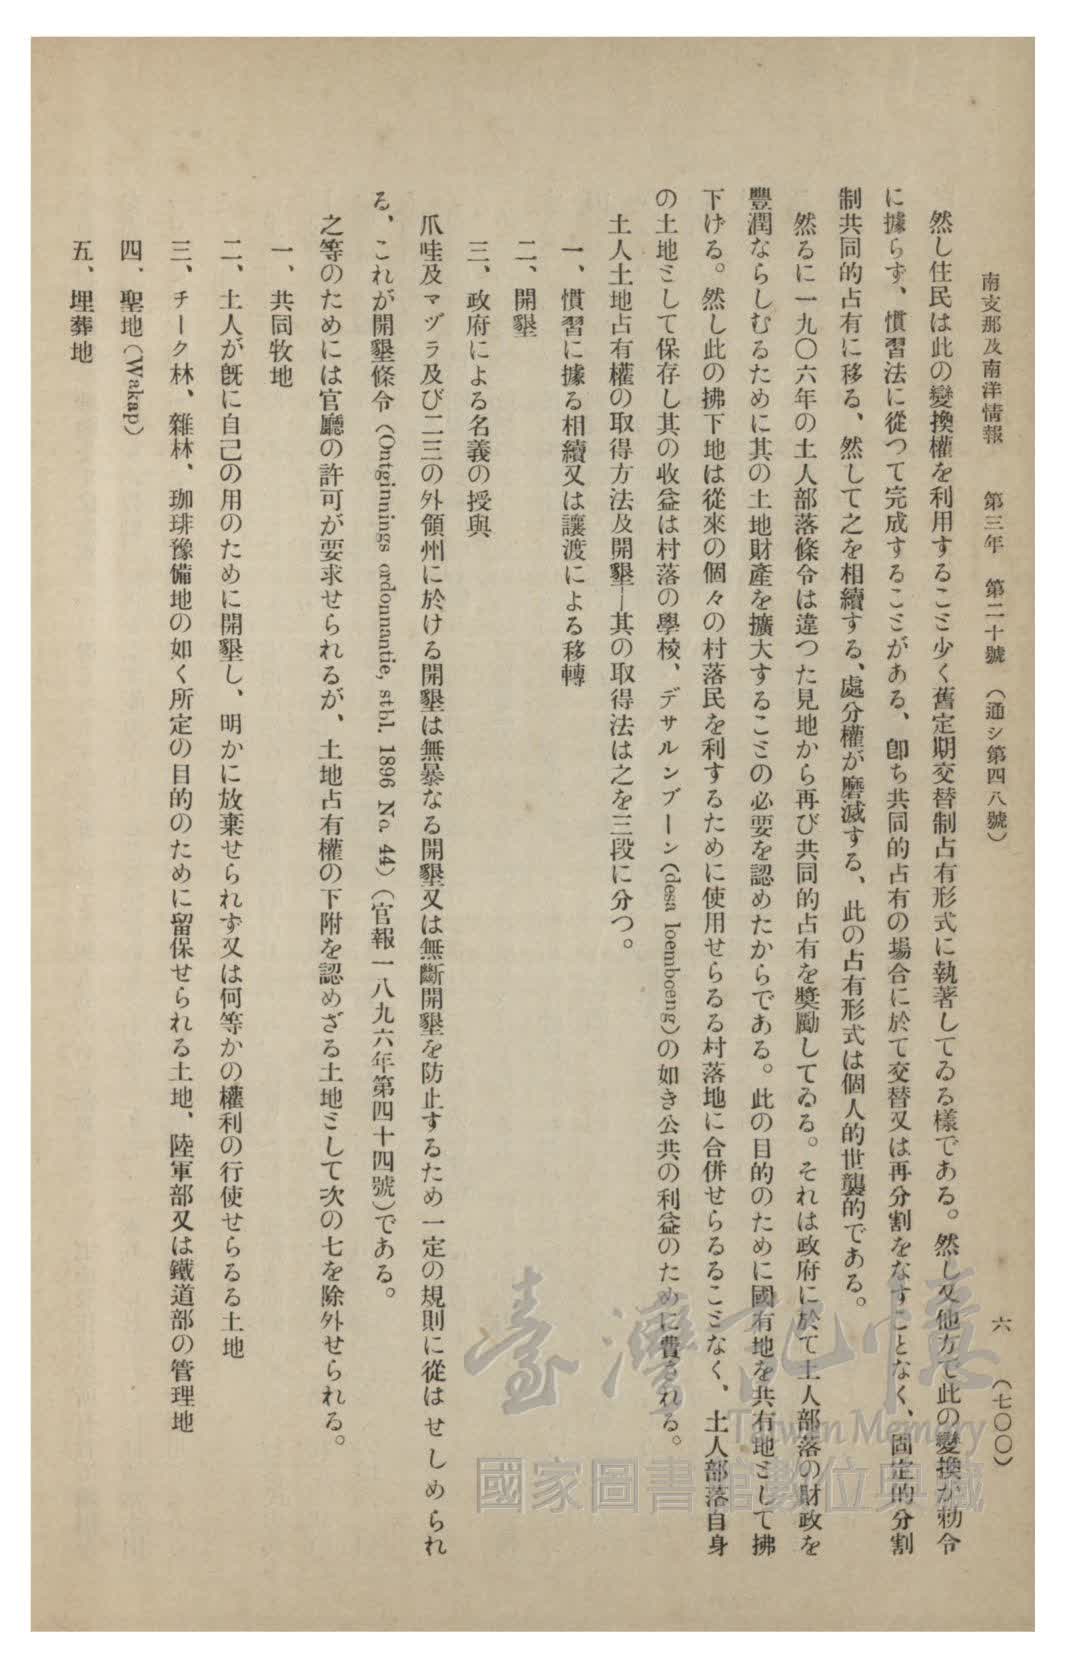 南支那及南洋情報　第三年　第二十號　（通シ第四八號）　六　（七〇〇）
然し住民は此の變換權を利用すること少く舊定期交替制占有形式に執著してゐる樣である。然し又他方で此の變換が勅令
に據らず、慣習法に從つて完成することがある、卽ち共同的占有の場合に於て交替又は再分割をなすことなく、固定的分割
制共同的占有に移る、然して之を相續する、處分權が磨滅する、此の占有形式は個人的世襲的である。
然るに一九〇六年の土人部落條令は違つた見地から再び共同的占有を奬勵してゐる。それは政府に於て土人部落の財政を
豐潤ならしむるために其の土地財產を擴大することの必要を認めたからである。此の目的のために國有地を共有地として拂
下げる。然し此の拂下地は從來の個々の村落民を利するために使用せらるる村落地に合併せらるることなく、土人部落自身
の土地として保存し其の收益は村落の學校、デサルンブーン（desa loemboeng）の如き公共の利益のために費される。
土人土地占有權の取得方法及開墾―其の取得法は之を三段に分つ。
一、慣習に據る相續又は讓渡による移轉
二、開墾
三、政府による名義の授與
爪哇及マヅラ及び二三の外領州に於ける開墾は無暴なる開墾又は無斷開墾を防止するため一定の規則に從はせしめられ
る、これが開墾條令（Ontginnings ordonnantie, stbl. 1896 No. 44）（官報一八九六年第四十四號）である。
之等のためには官廳の許可が要求せられるが、土地占有權の下附を認めざる土地として次の七を除外せられる。
一、共同牧地
二、土人が旣に自己の用のために開墾し、明かに放棄せられず又は何等かの權利の行使せらるる土地
三、チーク林、雜林、珈琲豫備地の如く所定の目的のために留保せられる土地、陸軍部又は鐵道部の管理地
四、聖地（Wakap）
五、埋葬地
臺灣記憶
Taiwan Memory
國家圖書館數位典藏